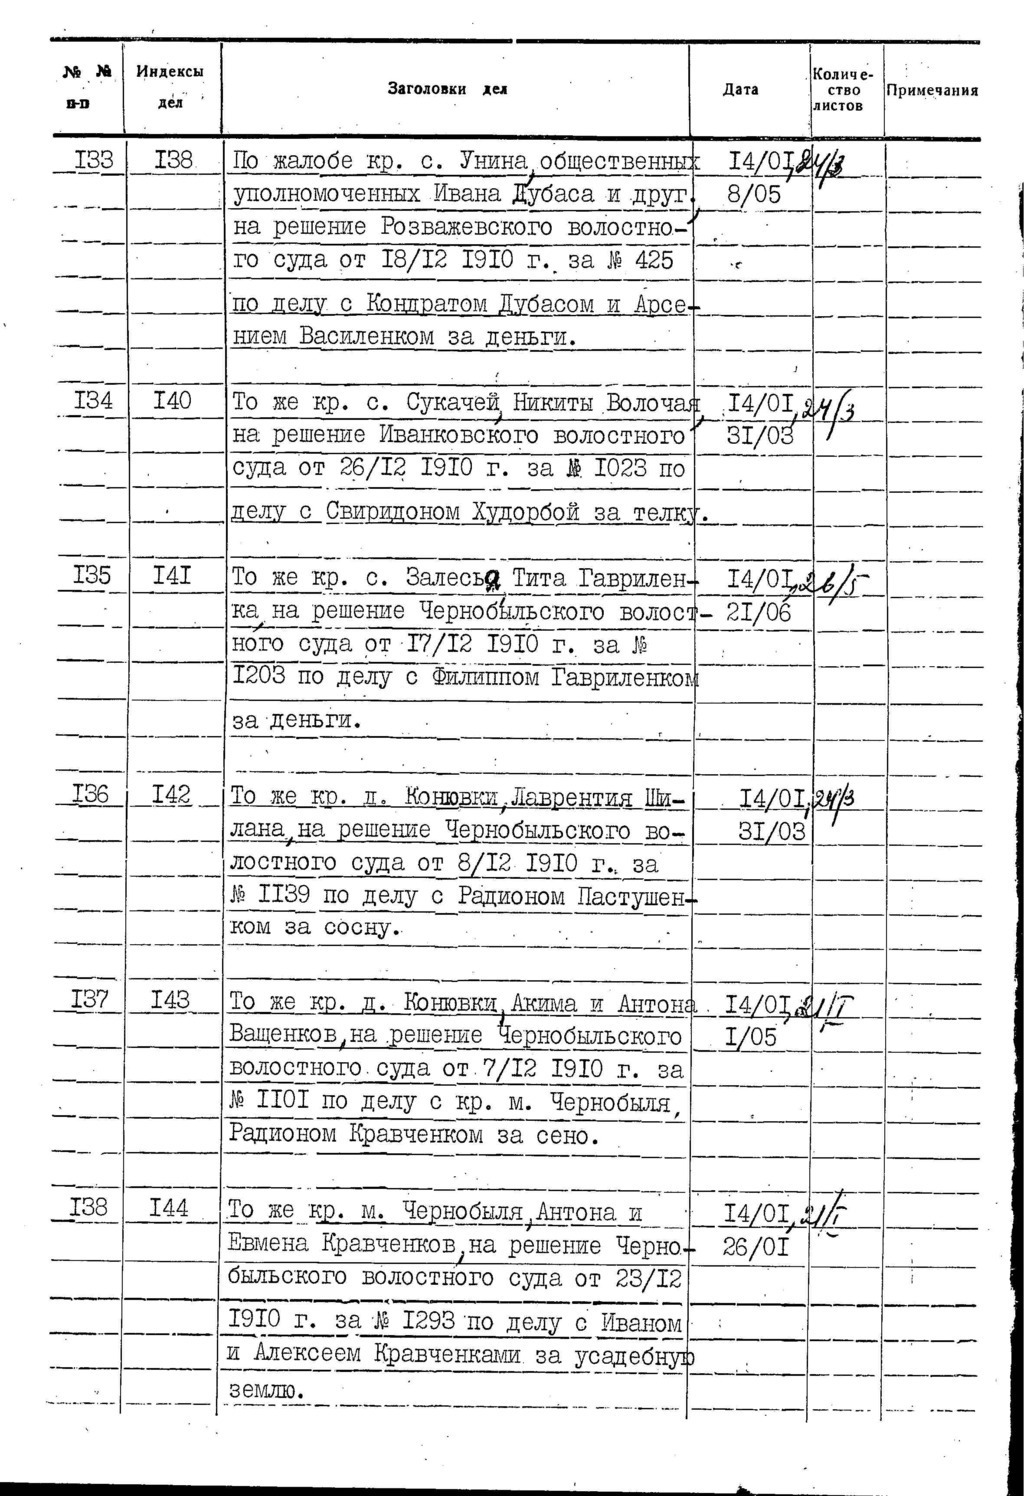 № № п-п	Индексы дел	Заголовки дел	Дата	Количество листов	Примечания
133	138	По жалобе кр. с. Унина, общественных	14/01, 24/3
уполномоченных Ивана Дубаса и друг.,	8/05
на решение Розважевского волостно-
го суда от 18/12 1910 г. за № 425
по делу с Кондратом Дубасом и Арсе-
нием Василенком за деньги.
134	140	То же кр. с. Сукачей, Никиты Волочая,	14/01, 24/3
на решение Иванковского волостного	31/03
суда от 26/12 1910 г. за № 1023 по
делу с Свиридоном Худорбой за телку.
135	141	То же кр. с. Залесья Тита Гаврилен-	14/01, 26/5
ка, на решение Чернобыльского волост-	21/06
ного суда от 17/12 1910 г. за №
1203 по делу с Филиппом Гавриленком
за деньги.
136	142	То же кр. д. Конювки, Лаврентия Ши-	14/01, 24/3
лана, на решение Чернобыльского во-	31/03
лостного суда от 8/12 1910 г., за
№ 1139 по делу с Радионом Пастушен-
ком за сосну.
137	143	То же кр. д. Конювки, Акима и Антона	14/01, 21/I
Ващенков, на решение Чернобыльского	1/05
волостного суда от 7/12 1910 г. за
№ 1101 по делу с кр. м. Чернобыля,
Радионом Кравченком за сено.
138	144	То же кр. м. Чернобыля, Антона и	14/01, 21/I
Евмена Кравченков, на решение Черно-	26/01
быльского волостного суда от 23/12
1910 г. за № 1293 по делу с Иваном
и Алексеем Кравченками за усадебную
землю.